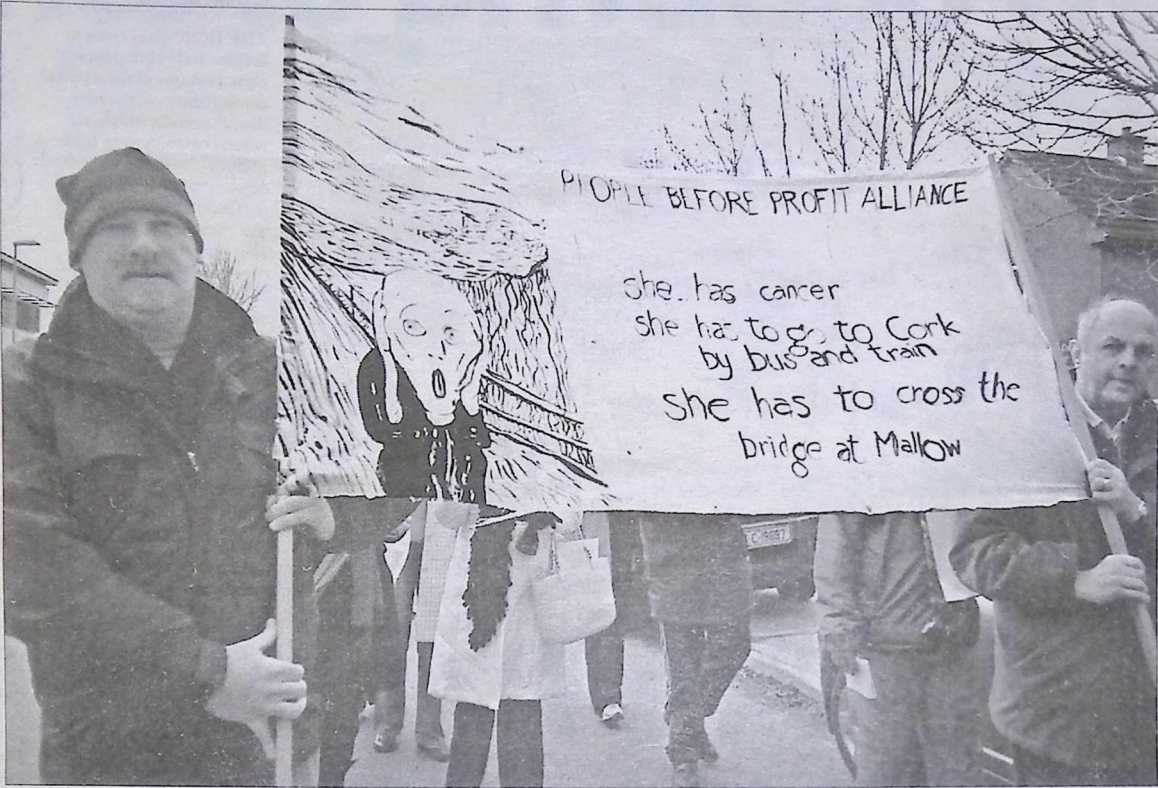 PEOPLE BEFORE PROFIT ALLIANCE
she has cancer
she has to go to Cork
by bus and train
she has to cross the
bridge at Mallow